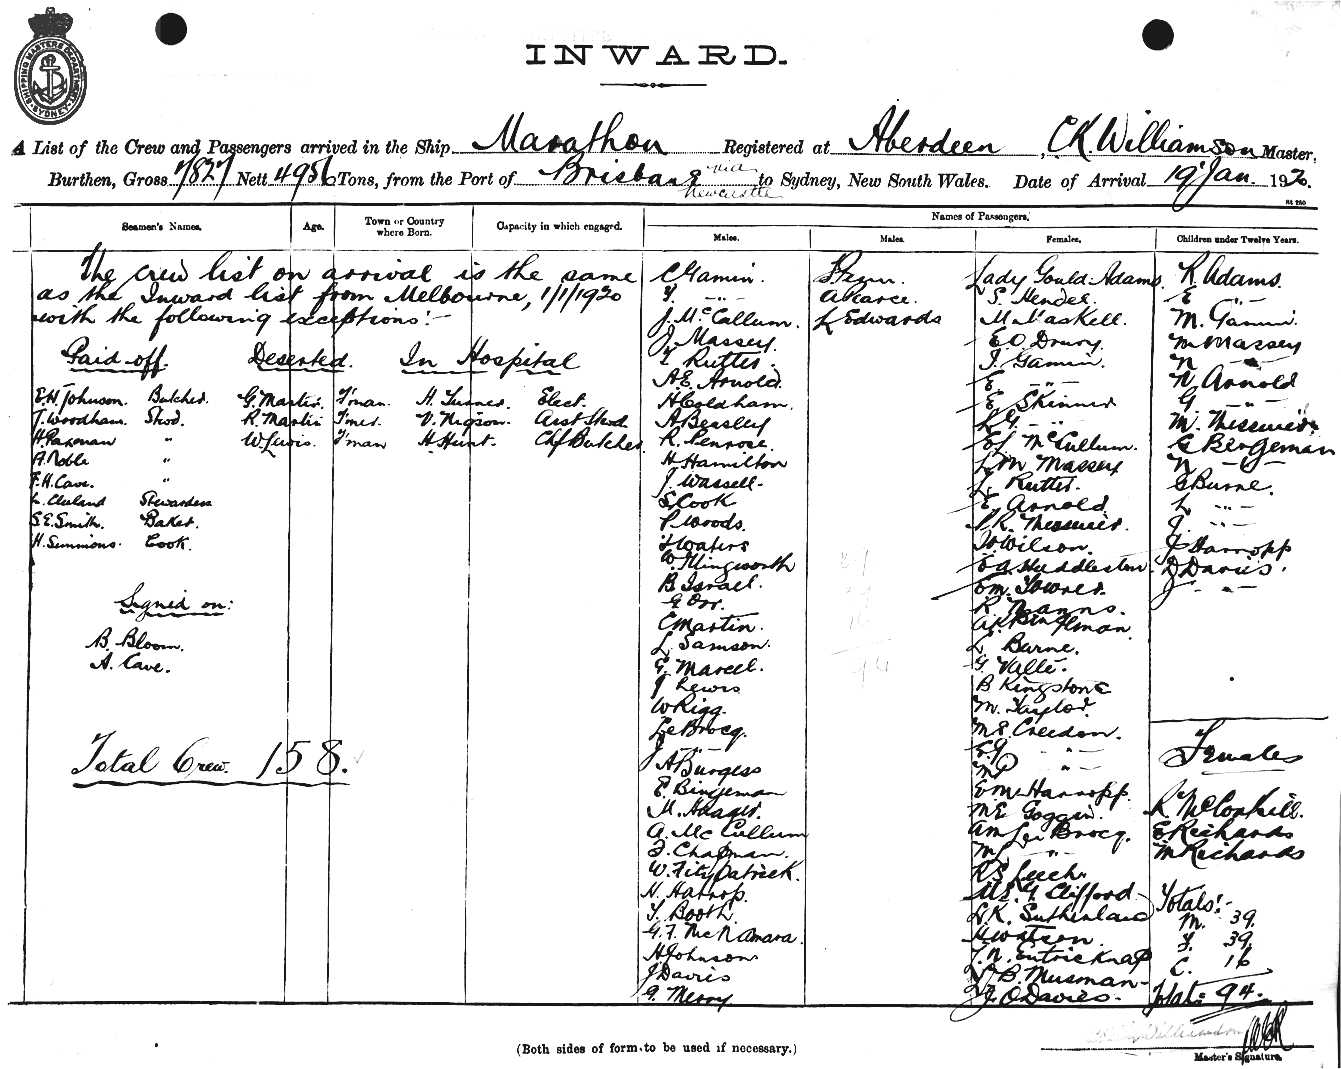 SHIPPING MASTERS DEPARTMENT SYDNEY
INWARD.
A List of the Crew and Passengers arrived in the Ship Marathon Registered at Aberdeen, C.K. Williamson Master,
Burthen, Gross 7827 Nett 4956 Tons, from the Port of Brisbane via Newcastle to Sydney, New South Wales. Date of Arrival 19 Jan. 1920.
Seamen's Names. Age. Town or Country where Born. Capacity in which engaged. Names of Passengers.
Males. Males. Females. Children under Twelve Years.
The crew list on arrival is the same
as the Inward list from Melbourne, 1/1/1920
with the following exceptions:-
Paid off. Deserted. In Hospital
E.W. Johnson. Butcher. G. Martin. F'man. H. Turner. Elect.
T. Woodham. Stwd. R. Martin F'mer. V. Asst Stwd
H. Paxman " W. Lewis. F'man H. Hunt. Chf Butcher
A. Noble "
F.H. Cave. "
L. Cleland Stewardess
S.E. Smith. Baker.
H. Simmons. Cook.
Signed on:
B. Bloom.
A. Cave.
Total Crew. 158.
C. Gamin.
F. -"-
J. McCallum.
J. Massey.
F. Rutter.
A.E. Arnold.
H. Coldham.
A. Beasley
R. Penrose
H. Hamilton
J. Wassell.
S. Cook
P. Woods.
F. Waters
W. Illingworth
B. Israel.
G. Orr.
C. Martin.
L. Samson.
G. Marcel.
J. Lewis
W. Rigg.
Le Brocq.
J. -"-
A. Burgess
E. Bingeman
A. McCullum
F. Chapman.
W. Fitzpatrick.
N. Harrop.
T. Booth.
G.F. McNamara.
H. Johnson
J. Davies
G. Merry
A. Pearce.
L. Edwards
Lady Gould-Adams.
S. Hendel.
M. Maskell.
E.O. Drury.
I. Gamin.
E. -"-
E. Skinner
L.G. -"-
E.J. McCullum.
L.M. Massey
L. Rutter.
E. Arnold
P.R. Messuier.
W. Wilson.
E.A. Huddleston.
E.M. Towner.
R. Manns.
A.R. Bingeman.
L. Burne.
G. Valle.
B. Kingstone
M. Taylor.
M.E. Creedon.
E.G. -"-
M.P. -"-
E.M. Harropp.
M.E. Goggin.
A.M. Le Brocq.
M. -"-
R.S. Leech.
M.S. G. Clifford.
L.K. Sutherland
H. Watson.
J.N. Entricknap
B. Musman-
J.O. Davies.
R. Adams.
E. -"-
M. Gamin.
M. Massey
N. -"-
N. Arnold
G. -"-
M. Messuier.
G. Bergeman
N. -"-
G. Burne.
L. -"-
J. -"-
J. Harropp
D. Davies.
J. -"-
Females
R. McCorkill.
E. Richards
M. Richards
Totals:-
M. 39.
F. 39.
C. 16
Total: 94.
(Both sides of form to be used if necessary.)
Master's Signature.